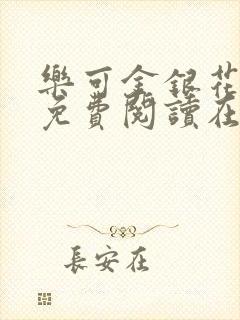 樂可金銀花
免費閱讀在
長安在